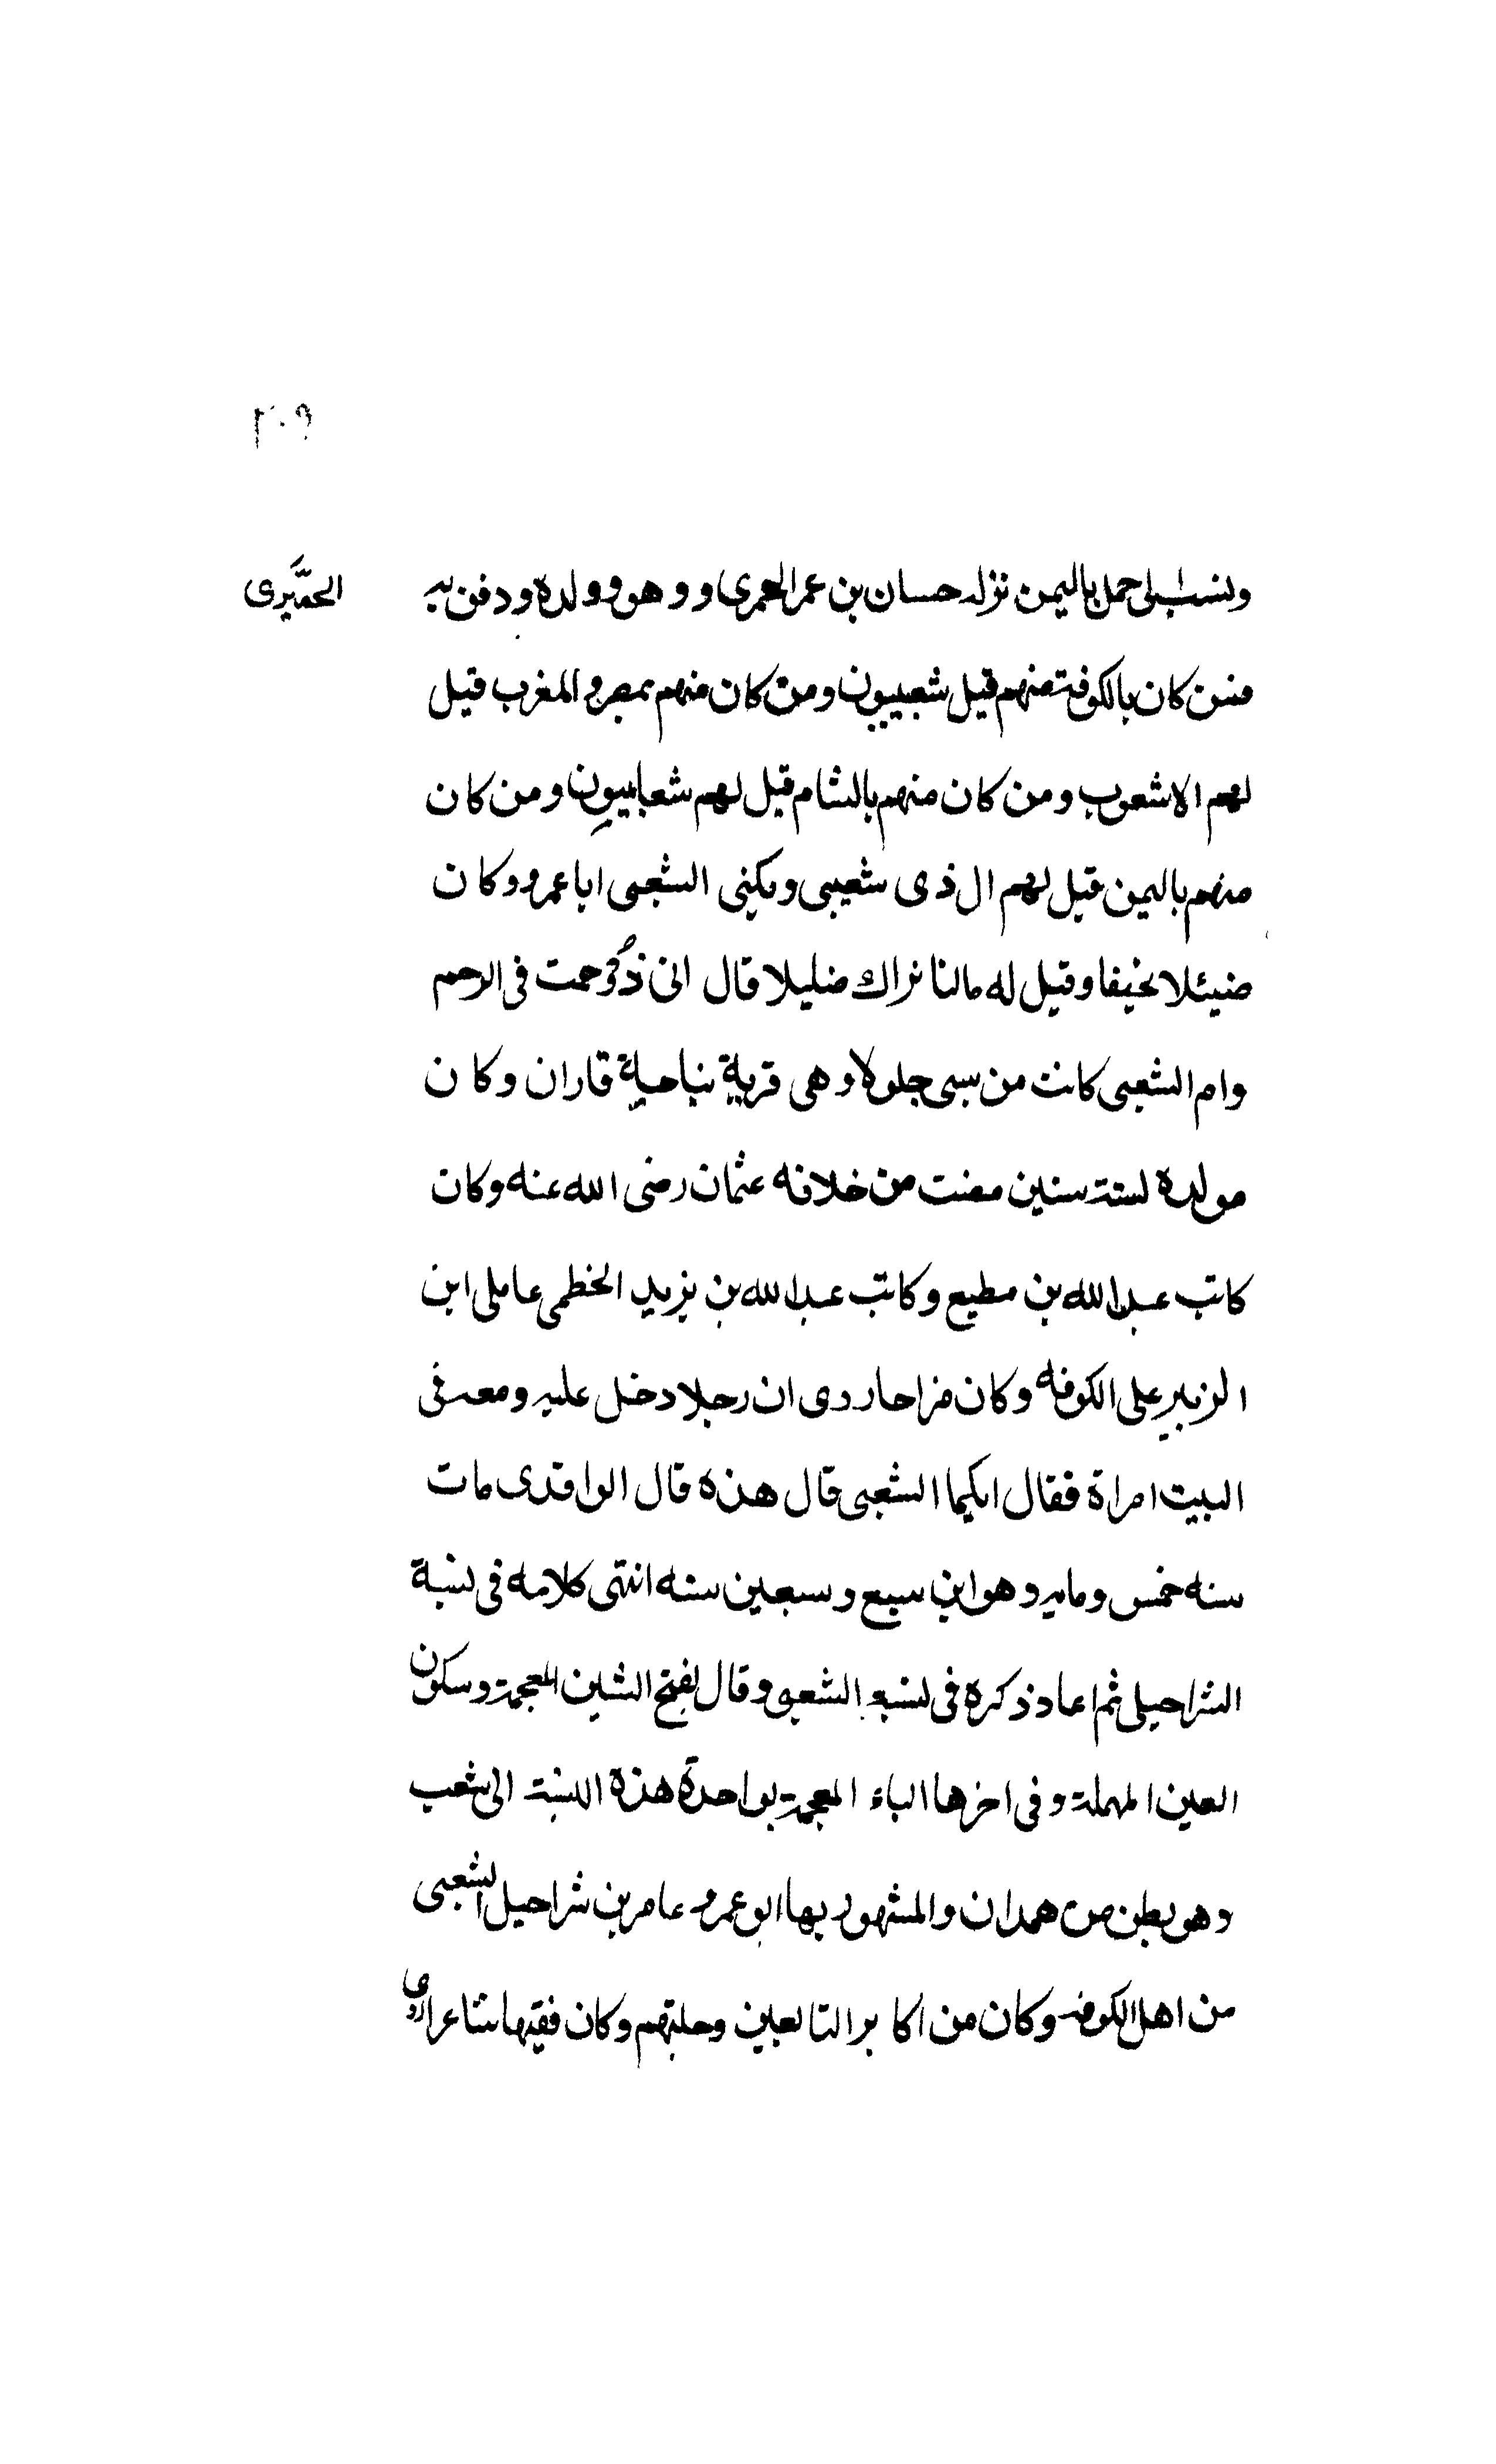 ٢٠٩
ونسب الى جبل باليمن نزله حسان بن عمر الحمرى و وهو وولده ودفن به
الحمّيرى
فمن كان بالكوفة منهم قيل شعبيون ومن كان منهم بمصر و المغرب قيل
لهم الاشعوب ومن كان منهم بالشام قيل لهم شعابيون ومن كان
منهم باليمن قيل لهم ال ذى شعيبى ويكنى الشعبى ابا عمرو وكان
ضئيلا نحيفا وقيل له مالنا نراك ضئيلا قال انى زوحمت فى الرحم
وام الشعبى كانت من سبى جلولا وهى قرية بناحية قاران وكان
مولده لستة سنين مضت من خلافه عثمان رضى الله عنه وكان
كاتب عبد الله بن مطيع وكاتب عبد الله بن يزيد الخطمى عاملى ابن
الزبير على الكوفه وكان مزاحا روى ان رجلا دخل عليه ومعه فى
البيت امراة فقال ايكما الشعبى قال هذه قال الواقدى مات
سنه خمس ومايه وهو ابن سبع وسبعين سنه انتهى كلامه فى نسبة
الشراحيلى ثم اعاد ذكره فى نسبه الشعبى وقال بفتح الشين المعجمة وسكون
العين المهملة وفى اخرها الباء المعجمة بواحدة هذه النسبة الى شعب
وهو بطن من همدان والمشهور بها ابو عمرو عامر بن شراحيل الشعبى
من اهل الكوفه وكان من اكابر التابعين وجلتهم وكان فقيها شاعرا روى